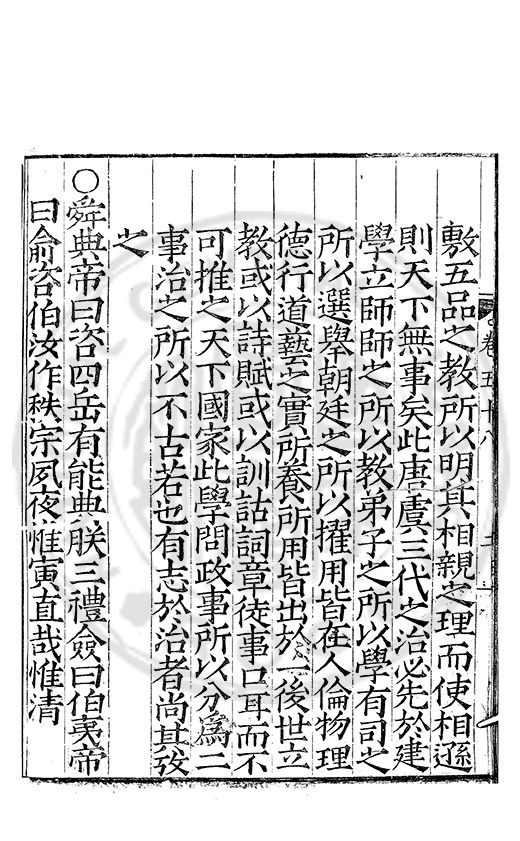 敷五品之教所以明其相親之理而使相遜
則天下無事矣此唐虞三代之治必先於建
學立師師之所以教弟子之所以學有司之
所以選舉朝廷之所以擢用皆在人倫物理
德行道藝之實所養所用皆出於一後世立
教或以詩賦或以訓詁詞章徒事口耳而不
可推之天下國家此學問政事所以分為二
事治之所以不古若也有志於治者尚其攷
之
○舜典帝曰咨四岳有能典朕三禮僉曰伯夷帝
曰俞咨伯汝作秩宗夙夜惟寅直哉惟清
卷五十八